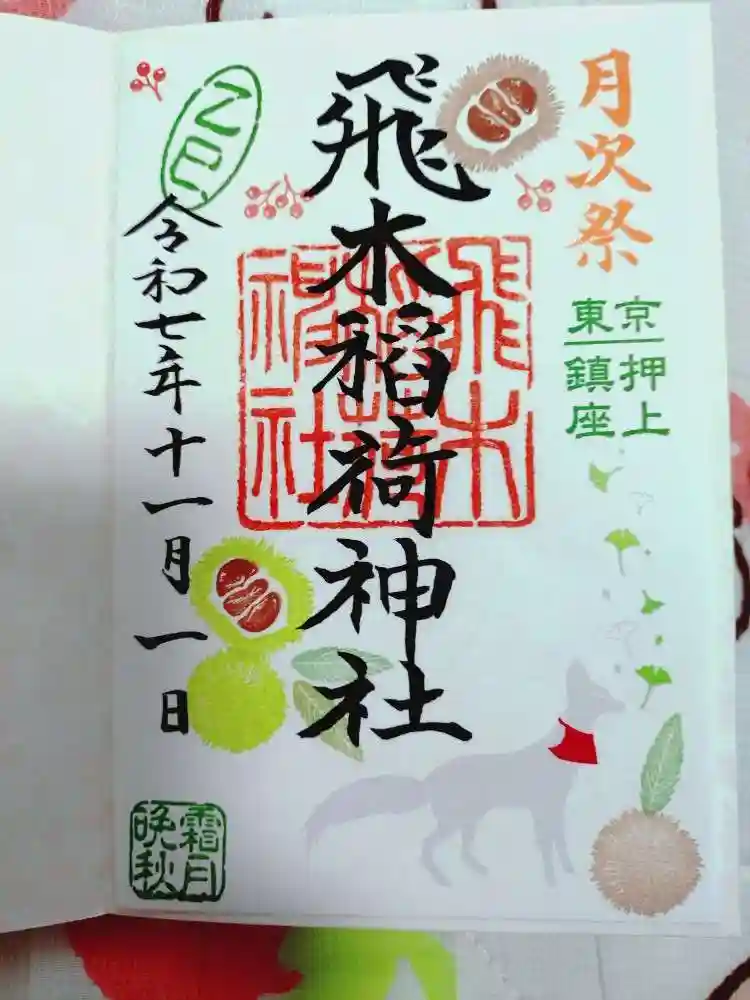 月次祭
東京
押上
鎮座
飛木稲荷神社
飛木
稲荷
神社
乙巳
令和七年十一月一日
霜月
晩秋